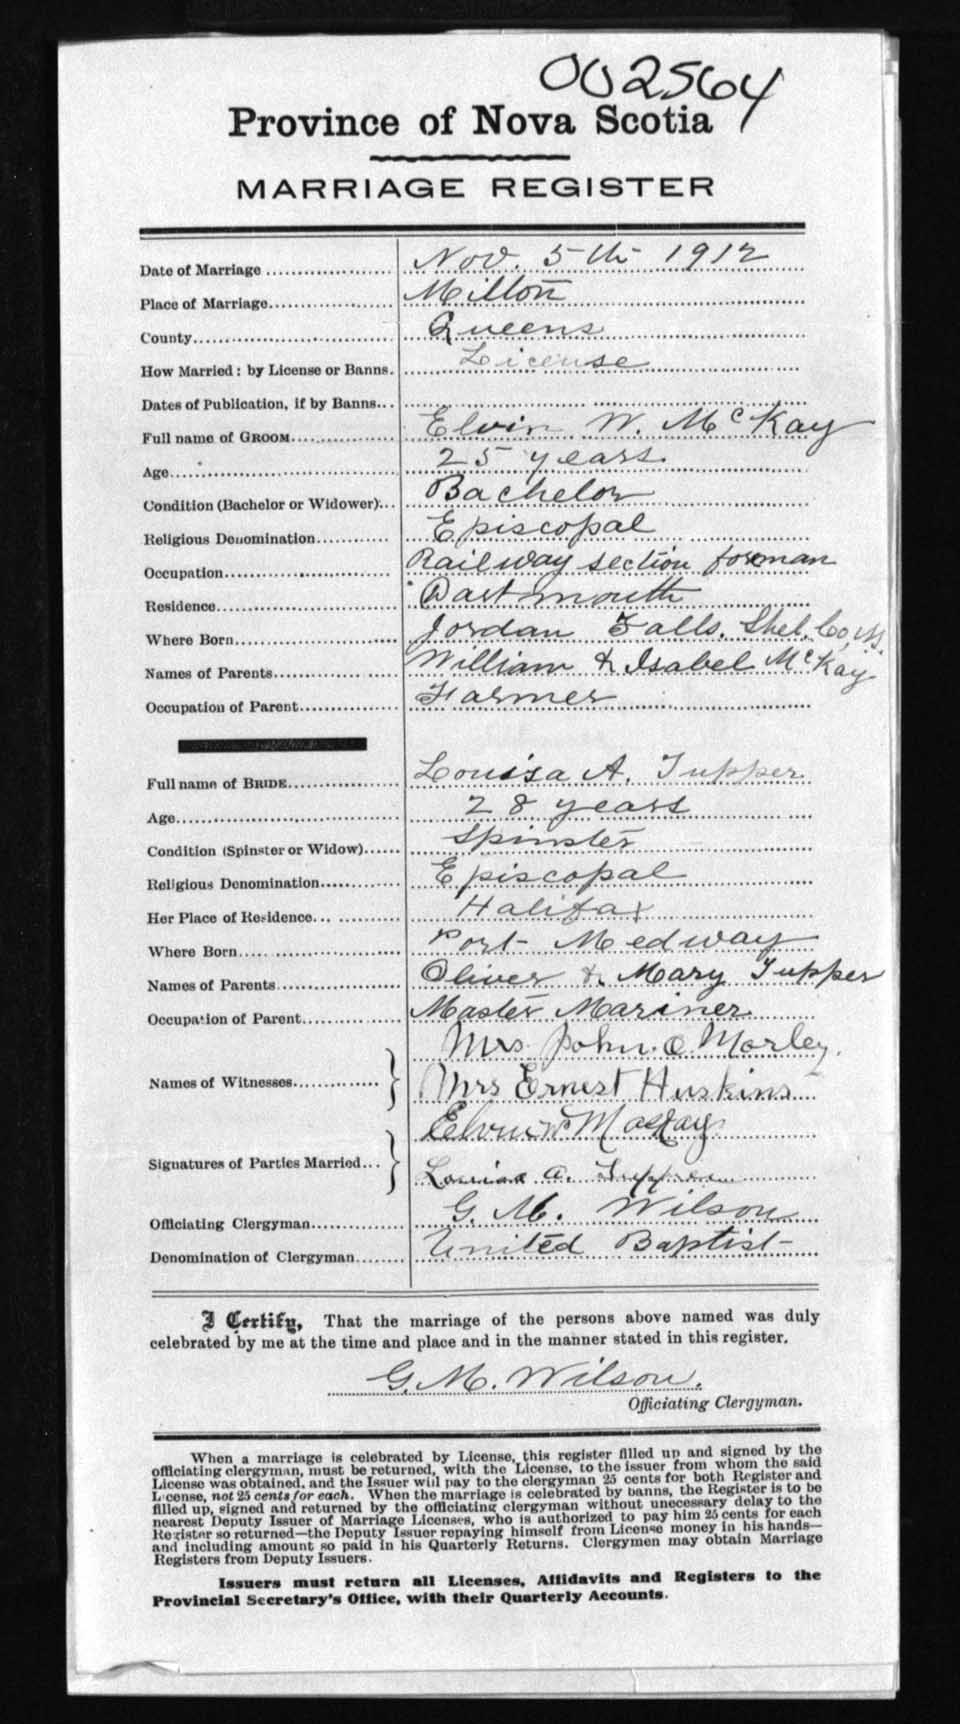 002564
Province of Nova Scotia
MARRIAGE REGISTER
Date of Marriage Nov. 5th 1912
Place of Marriage Milton
County Queens
How Married: by License or Banns. License
Dates of Publication, if by Banns
Full name of GROOM Elvin W. McKay
Age 25 years
Condition (Bachelor or Widower) Bachelor
Religious Denomination Episcopal
Occupation Railway section forman
Residence Dartmouth
Where Born Jordan Falls. Shel. Co. N.S.
Names of Parents William & Isabel McKay
Occupation of Parent Farmer
Full name of BRIDE Louisa A. Tupper
Age 28 years
Condition (Spinster or Widow) Spinster
Religious Denomination Episcopal
Her Place of Residence Halifax
Where Born Port Medway
Names of Parents Oliver & Mary Tupper
Occupation of Parent Master Mariner
Mrs. John. O. Morley.
Names of Witnesses Mrs Ernest Huskins
Elvin W MacKay
Signatures of Parties Married
Louisa A. Tupper
Officiating Clergyman G. M. Wilson
Denomination of Clergyman United Baptist
I Certify, That the marriage of the persons above named was duly
celebrated by me at the time and place and in the manner stated in this register.
G. M. Wilson.
Officiating Clergyman.
When a marriage is celebrated by License, this register filled up and signed by the
officiating clergyman, must be returned, with the License, to the issuer from whom the said
License was obtained, and the Issuer will pay to the clergyman 25 cents for both Register and
License, not 25 cents for each. When the marriage is celebrated by banns, the Register is to be
filled up, signed and returned by the officiating clergyman without unnecessary delay to the
nearest Deputy Issuer of Marriage Licenses, who is authorized to pay him 25 cents for each
Register so returned—the Deputy Issuer repaying himself from License money in his hands—
and including amount so paid in his Quarterly Returns. Clergymen may obtain Marriage
Registers from Deputy Issuers.
Issuers must return all Licenses, Affidavits and Registers to the
Provincial Secretary's Office, with their Quarterly Accounts.